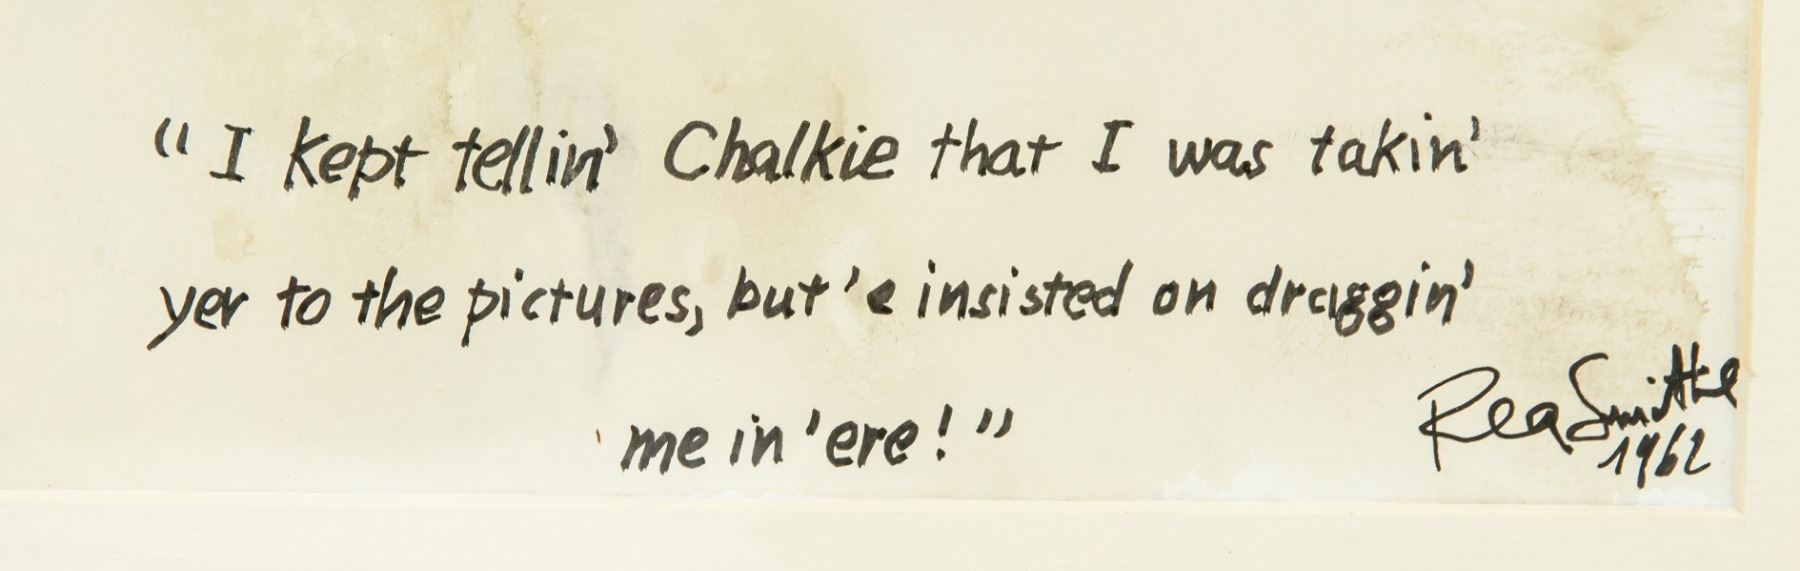 “I kept tellin' Chalkie that I was takin'
yer to the pictures, but 'e insisted on draggin'
me in 'ere!”
Rea Smithe
1962